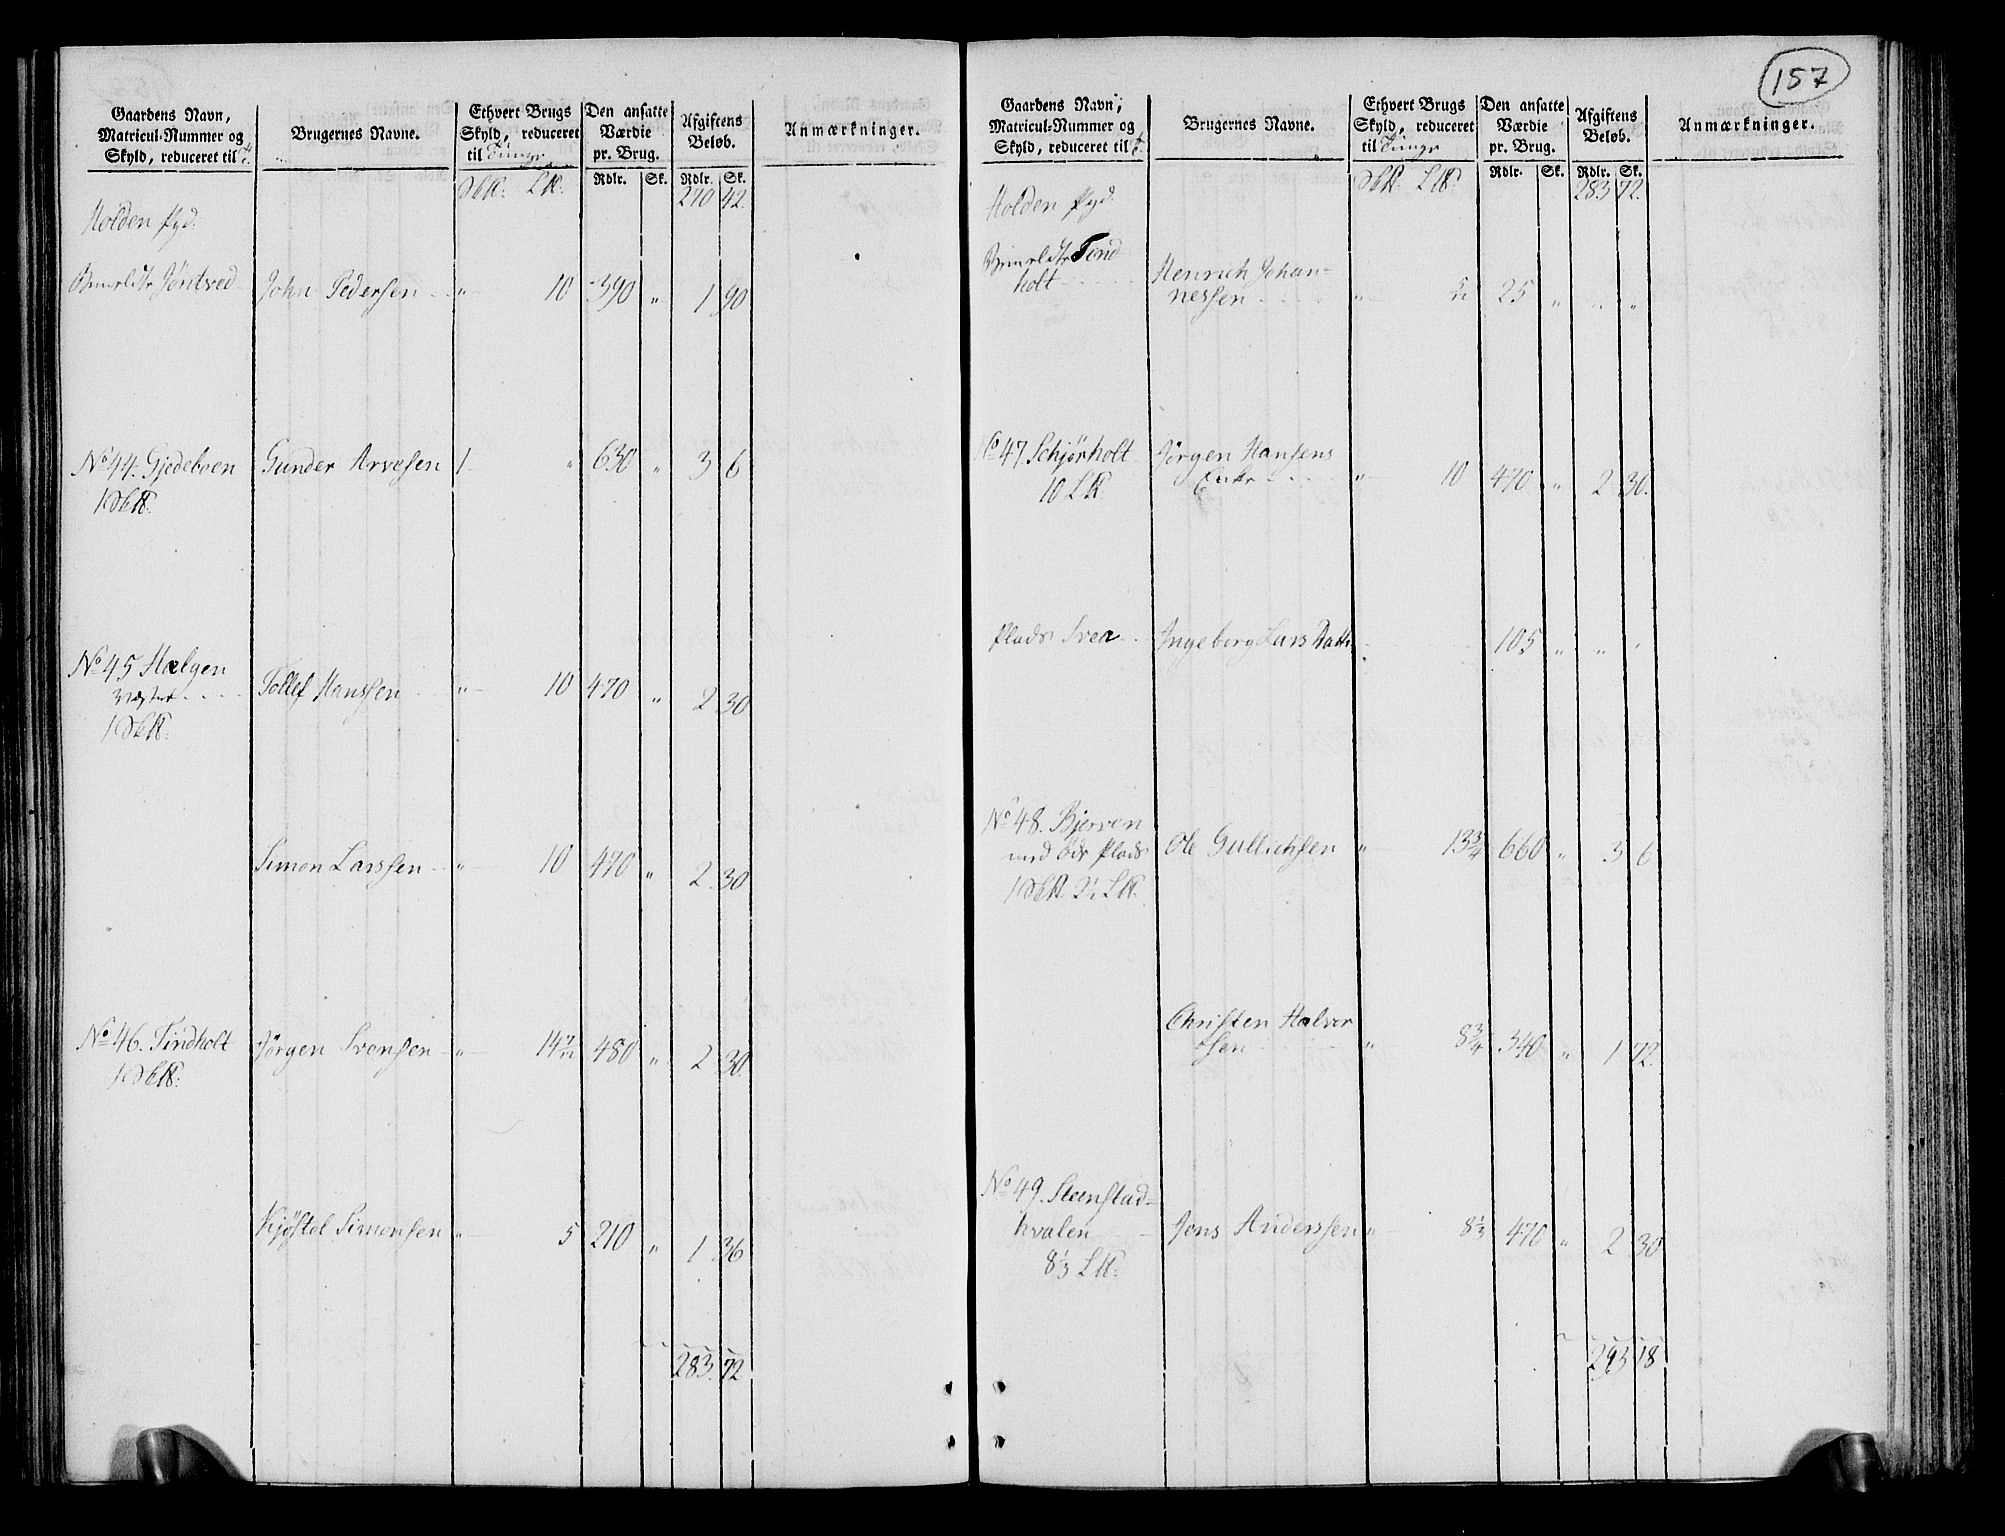 157
Gaardens Navn, Matricul-Nummer og Skyld, reduceret til
Brugernes Navne.
Ethvert Brugs Skyld, reduceret til Tunge
Den ansatte Værdie pr. Brug.
Afgiftens Beløb.
Anmærkninger.
Rdlr. Sk. Rdlr. Sk.
270 42.
Holden
Jøntved John Pedersen " 10 390 " 1 90
No 44. Gjedeboen Gunder Arvesen 1 " 630 " 3 6
No 45 Hælgen Tollef Hanssen " 10 470 " 2 30
Simon Larssen " 10 470 " 2 30
No 46. Tindholt Jørgen Svensen " 14 7/12 480 " 2 30.
Kjøstel Simonsen " 5 210 " 1 36
283. 72
Gaardens Navn, Matricul-Nummer og Skyld, reduceret til
Brugernes Navne.
Ethvert Brugs Skyld, reduceret til Tunge
Den ansatte Værdie pr. Brug.
Afgiftens Beløb.
Anmærkninger.
Rdlr. Sk. Rdlr. Sk.
283 72.
Holden
Tind-
holt Henrich Johan-
nessen " 5/12 25 " " "
No 47. Schjørholt Jørgen Hansens
10 Enke " 10 470 " 2 30.
Plads Svea Ingeborg Lars Datter 105 " " "
No 48. Bjerven
med Plads Ole Gullichsen " 13 3/4 660 " 3 6
Christen Halvor
sen " 8 3/4 340 " 1 72.
No 49. Steenstad-
hvalen Jens Anderssen " 8 1/3 470 " 2 30
8 1/3
293 18